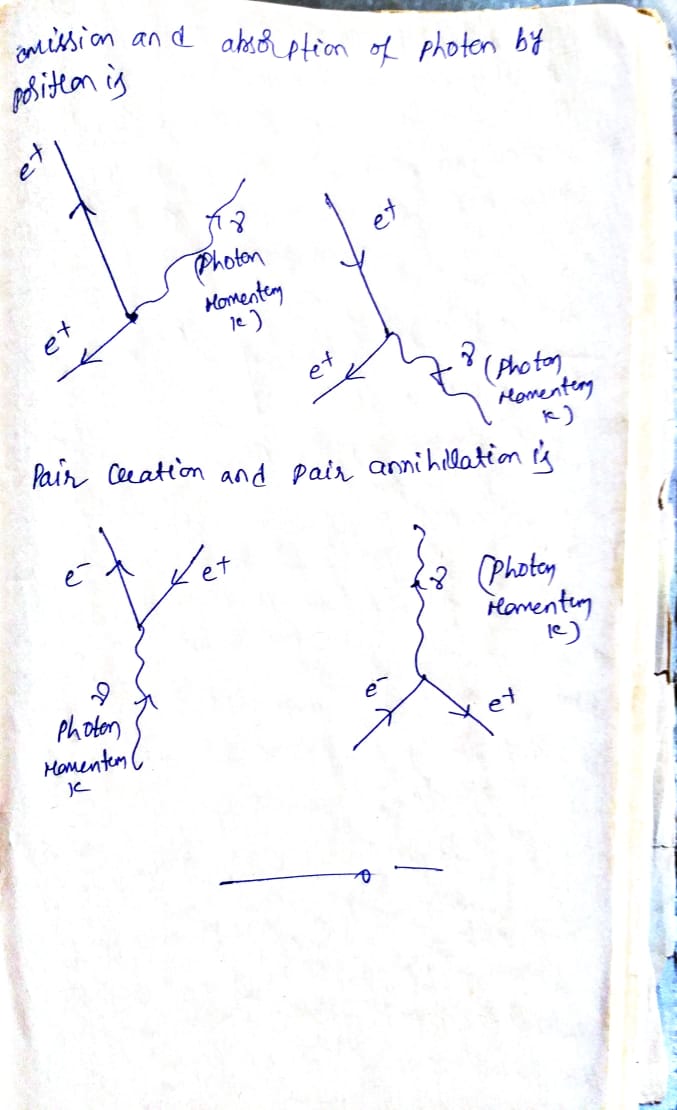 emission and absorption of photon by
positron is
e+
γ
(Photon
Momentum
k)
e+
e+
γ (Photon
Momentum
k)
e+
Pair creation and pair annihillation is
e-
e+
γ
Photon
Momentum
k
γ (Photon
Momentum
k)
e-
e+